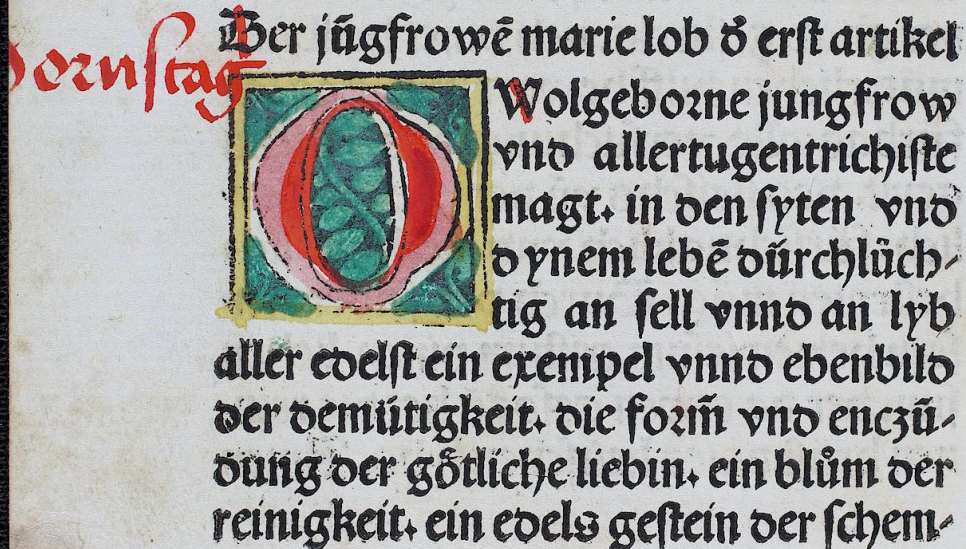 Dornstag
Der jũgfrowẽ marie lob đ erst artikel
O Wolgeborne jungfrow
vnd allertugentrichiste
magt. in den syten vnd
dynem lebẽ dűrchlűch-
tig an sell vnnd an lyb
aller edelst ein exempel vnnd ebenbild
der demütigkeit. die form̃ vnd enczű-
dung der gőtliche liebin. ein blům der
reinigkeit. ein edels gestein der schem-